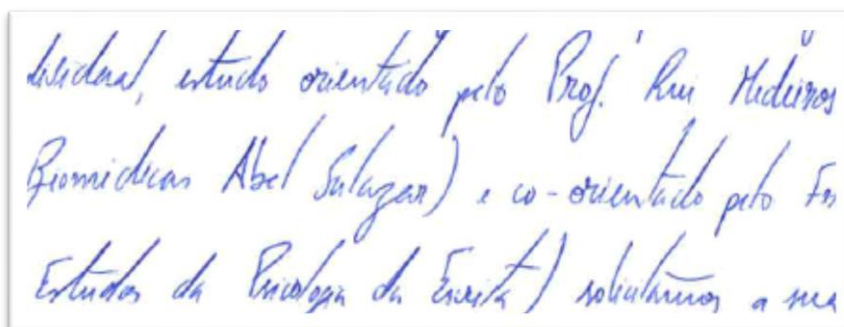 estudo orientado pelo Prof. Rui Medeiros
Biomédicas Abel Salazar) e co-orientado pelo
Estudos da Psicologia da Escrita) solicitamos a sua